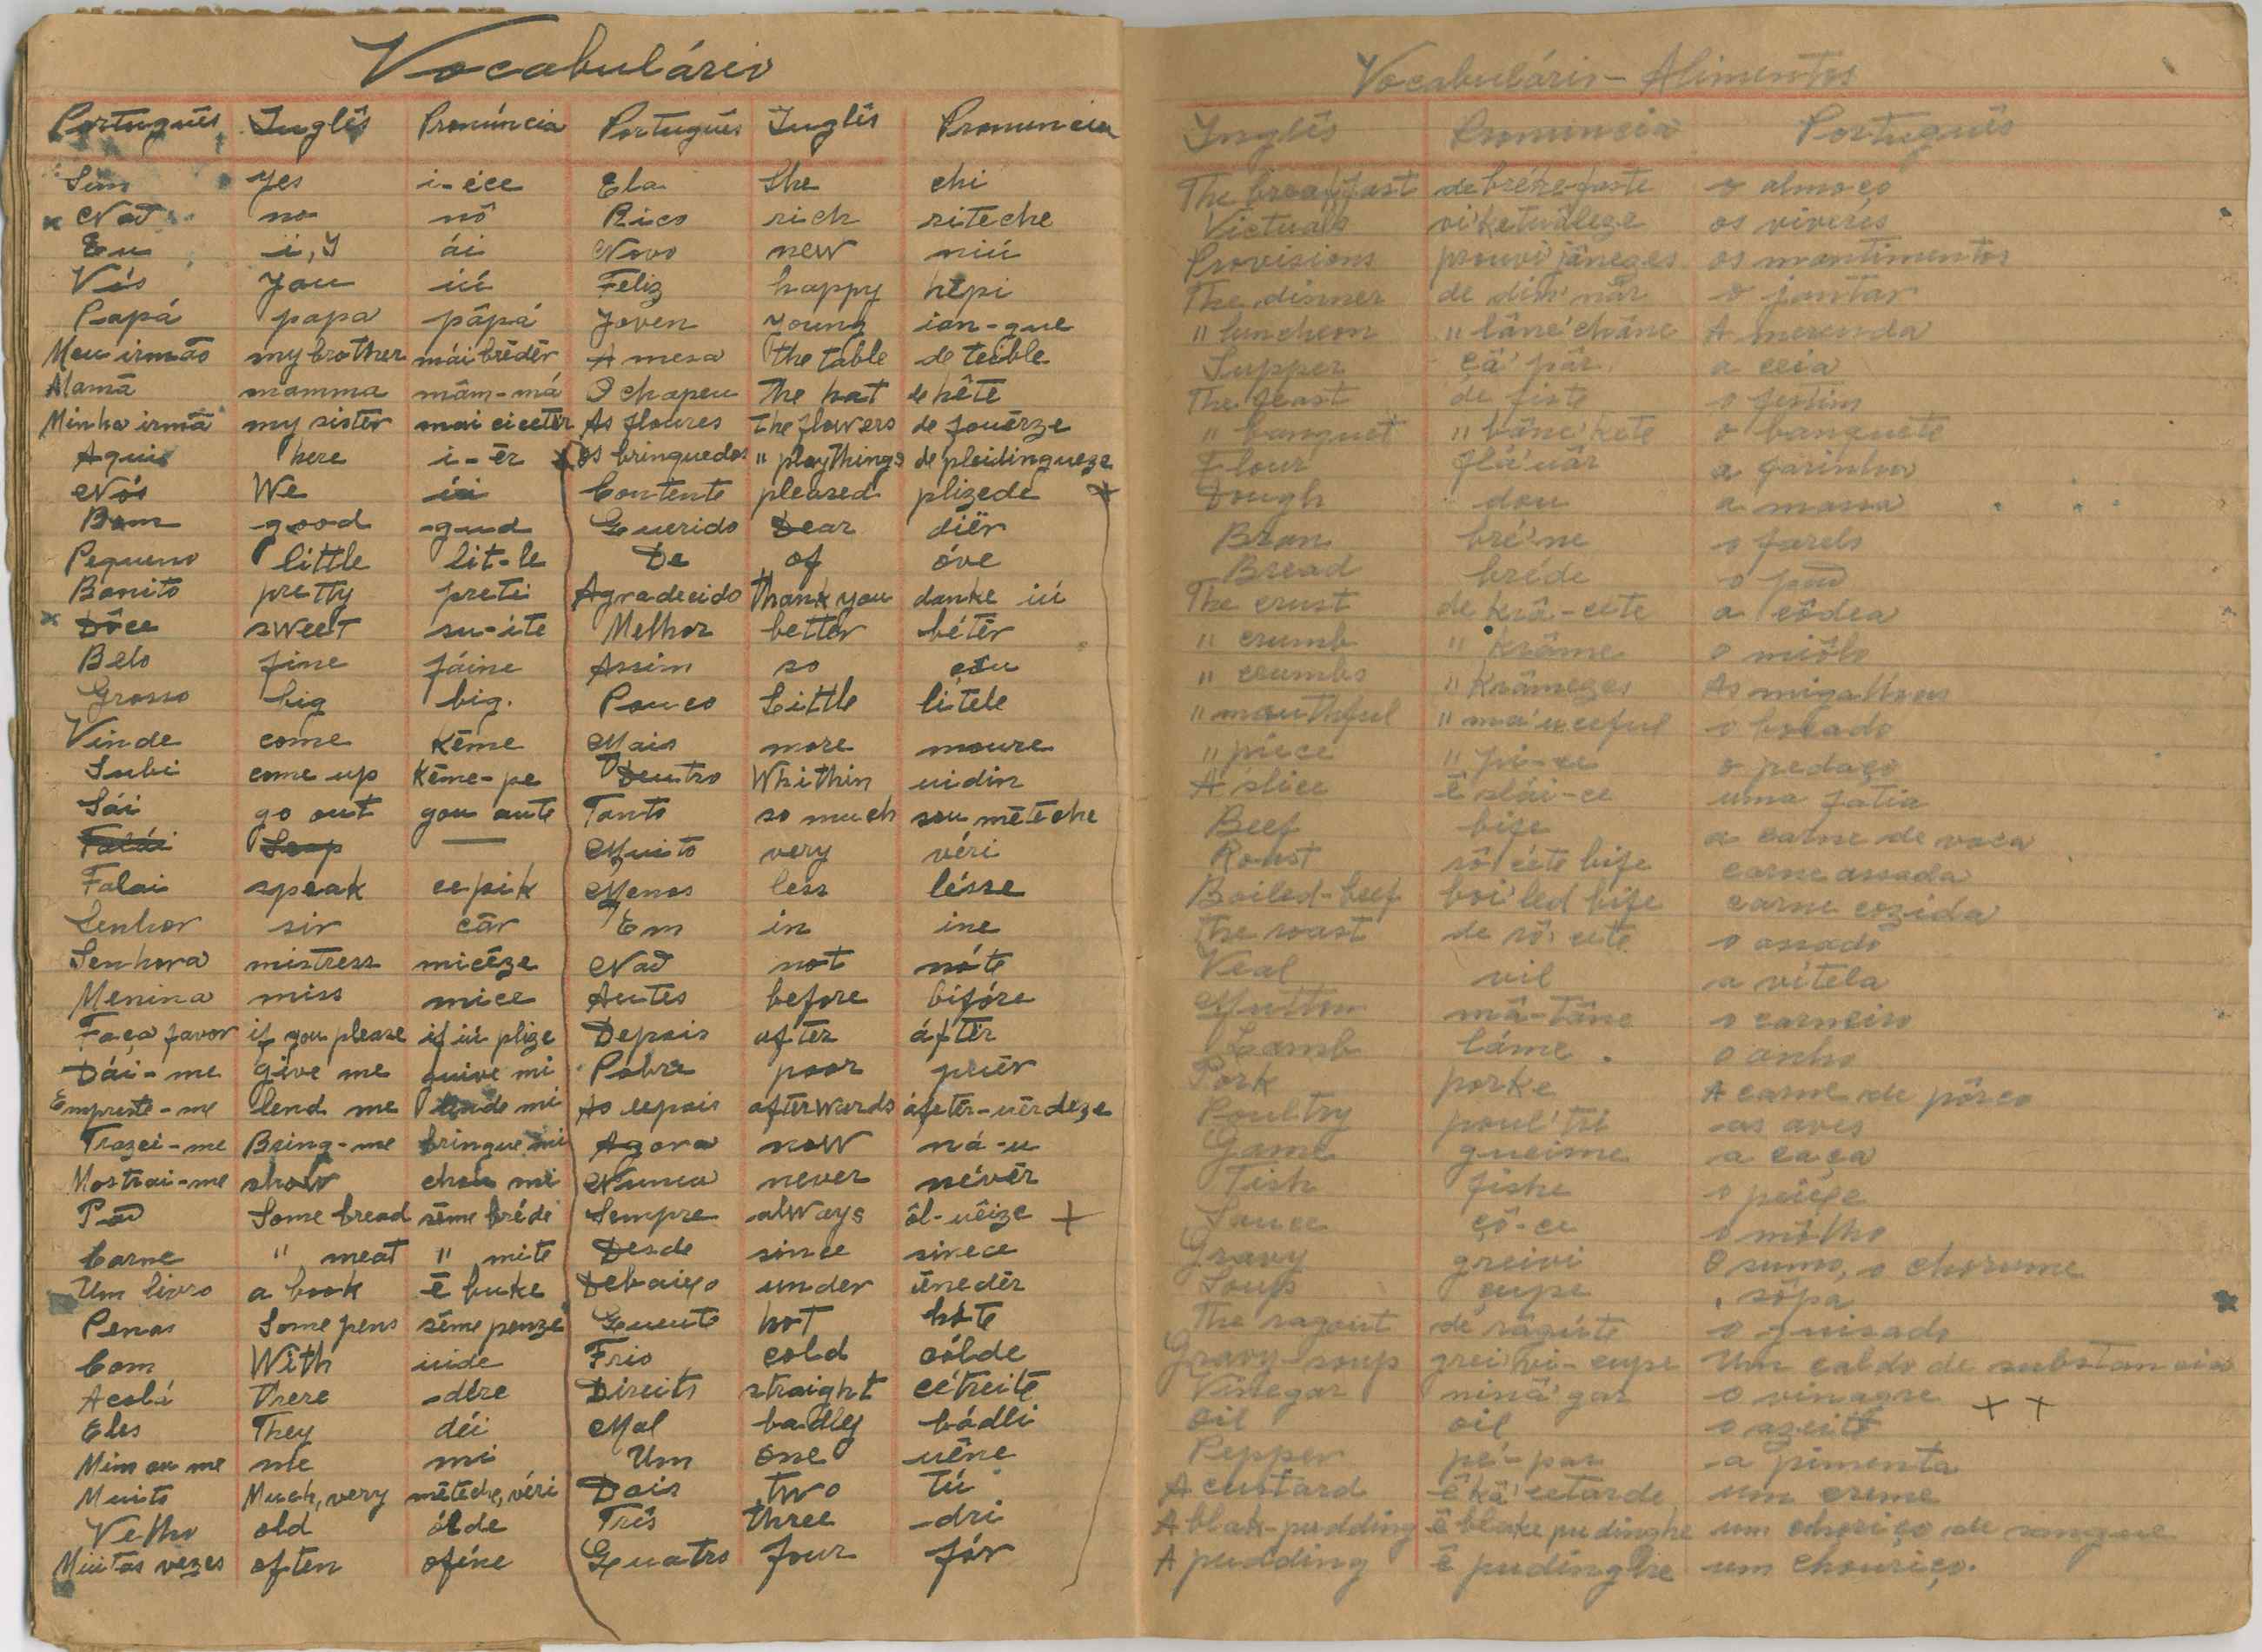 Vocabulário
Português Inglês Pronúncia Português Inglês Pronuncia
Sim yes i-éce Ela she chi
Não no nô Rico rich riteche
Eu i, I ái Novo new niú
Vós you iú Feliz happy hépi
Papá papa pâpá Joven young ian-gue
Meu irmão my brother mái brēdēr A mesa the table de teible
Mamã mamma mâm-má O chapeu The hat de hête
Minha irmã my sister mai ciceter As floures The flowers de fouērze
Aqui here i-ēr Os brinquedos " playthings de pleidingueze
Nós We úi Contente pleased plizede
Bom good gud Querido Dear diēr
Pequeno little lit-le De of óve
Bonito pretty preti Agradecido Thank you danke iú
Dôce sweet su-ite Melhor better bétēr
Belo fine fáine Assim so çou
Grosso big big. Pouco Little litele
Vinde come Kēme Mais more moure
Subi come up Kēme-pe Dentro Whithin uidin
Sái go out gou aute Tanto so much sou mēteche
Falái Soap — Muito very véri
Falai speak cepik Menos less lésse
Senhor sir cār Em in ine
Senhora mistress micēze Não not nóte
Menina miss mice Antes before bifóre
Faça favor if you please if iú plize Depois after áftēr
Dái-me give me guive mi Pobre poor puēr
Empreste-me lend me lende mi Ao depois afterwards áfetēr-uērdeze
Trazei-me Bring-me bringue mi Agora now ná-u
Mostrai-me show chou mi Nunca never névēr
Pão Some bread sēme bréde Sempre always ôl-uêize +
Carne " meat " mite Desde since sinece
Um livro a book ē buke Debaixo under ēnedēr
Penas Some pens sēme penze Quente hot hóte
Com With uide Frio cold cólde
Acolá There dére Direito straight cetreite
Eles They déi Mal badly bádli
Mim ou me me mi Um one uēne
Muito Much, very mēteche, véri Dois two tú
Velho old ólde Três three dri
Muitas vezes often ofíne Quatro four fór
Vocabulário - Alimentos
Inglês Pronuncia Português
The breakfast de bréke-faste o almoço
Victuals vi'ketuâleze os viveres
Provisions prouvi'jâneges os mantimentos
The dinner de din'nâr o jantar
" luncheon " lâne'châne A merenda
Supper çâ'pâr a ceia
The feast de fiste o festim
" banquet " bâne'kete o banquete
Flour flá'uâr a farinha
Dough dou a massa
Bran bré'ne o farelo
Bread bréde o pão
The crust de krâ-cete a côdea
" crumb " krâme o miôlo
" crumbs " Krâmeges As migalhas
" mouthful " ma'uceful o bocado
" piece " pi-ce o pedaço
A slice ê slái-ce uma fatia
Beef bife a carne de vaca
Roast rô'cete bife carne assada
Boiled-beef boi'led bife carne cozida
The roast de rô'cete o assado
Veal vil a vitela
Mutton mâ-tâne o carneiro
Lamb láme. o anho
Pork porke A carne de pôrco
Poultry poul'tri as aves
Game gueime a caça
Fish fishe o peixe
Sauce çô-ce o môlho
Gravy greivi O sumo, o chorume
Soup çupe sôpa
The ragout de rágúte o guisado
Gravy-soup grei'vi-cupe Um caldo de substancia
Vinegar ninâ'gar o vinagre
Oil oil o azeite + +
Pepper pé-par a pimenta
A custard ê kâ'cetarde um creme
A blak-pudding ê blake pudinghe um choriço de sangue
A pudding ê pudinghe um chouriço.